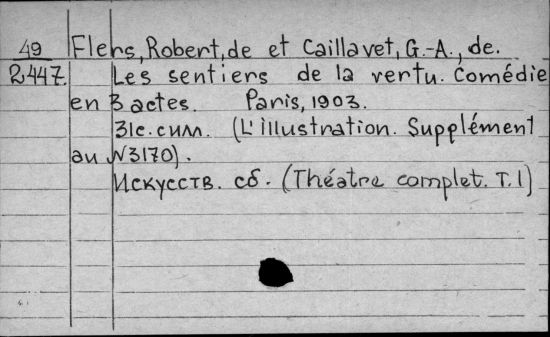 49 Flers, Robert, de et Caillavet, G.-A., de.
2447. Les sentiers de la vertu. Comédie
en 3 actes. Paris, 1903.
31c. силл. (L'illustration. Supplément
au N3170).
Искусств. сб. (Théatre complet. T.1)